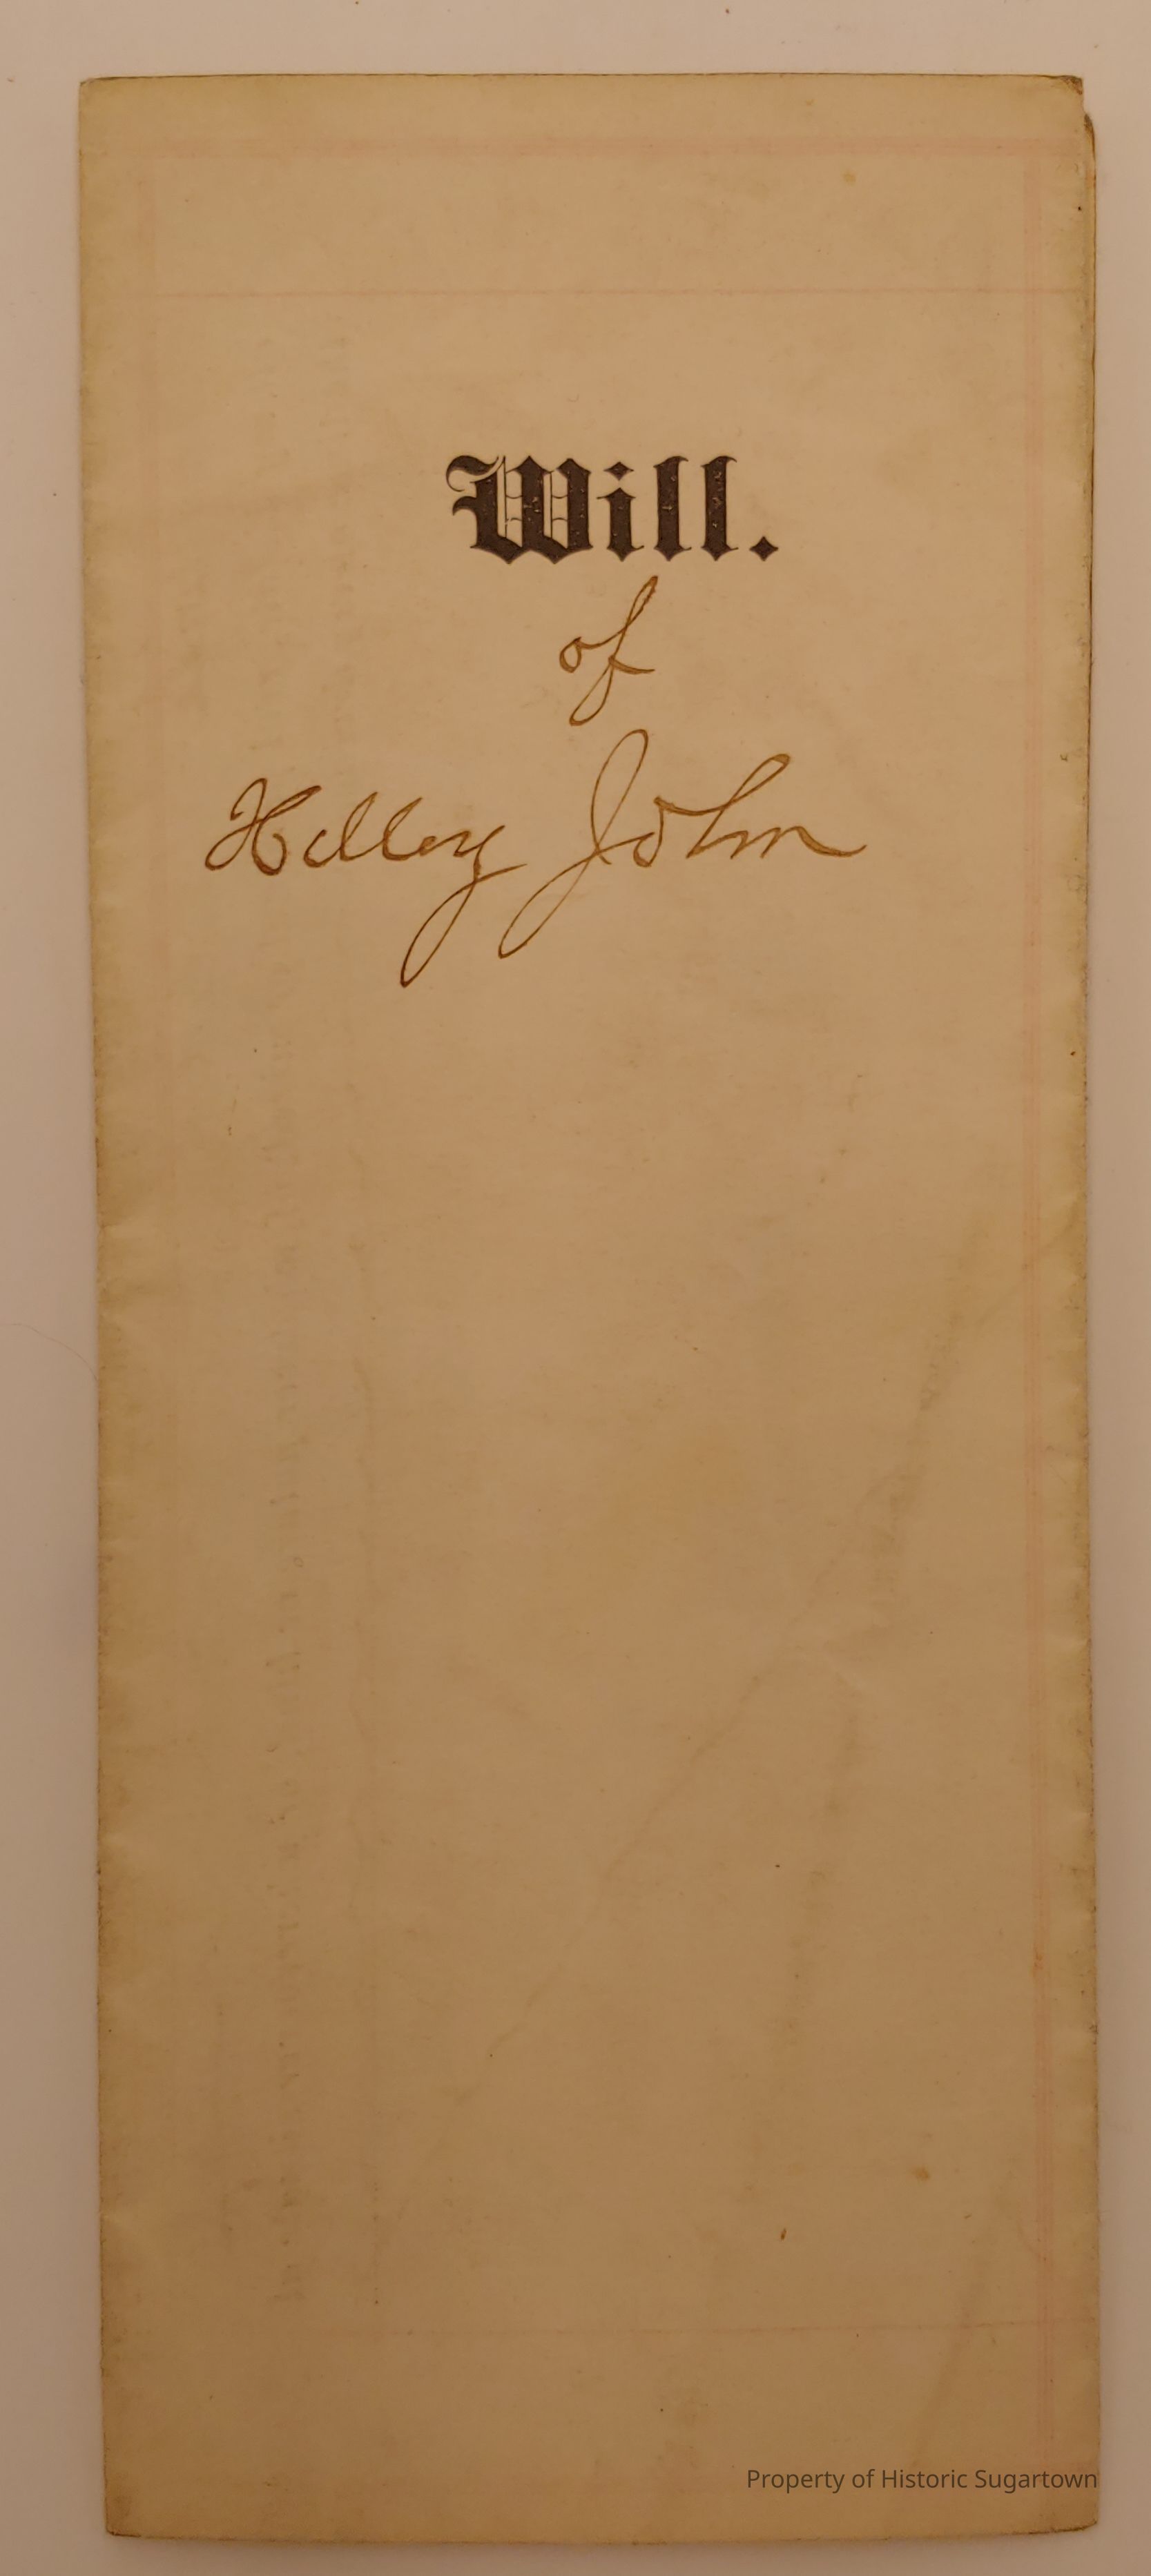 Will.
of
John
Property of Historic Sugartown